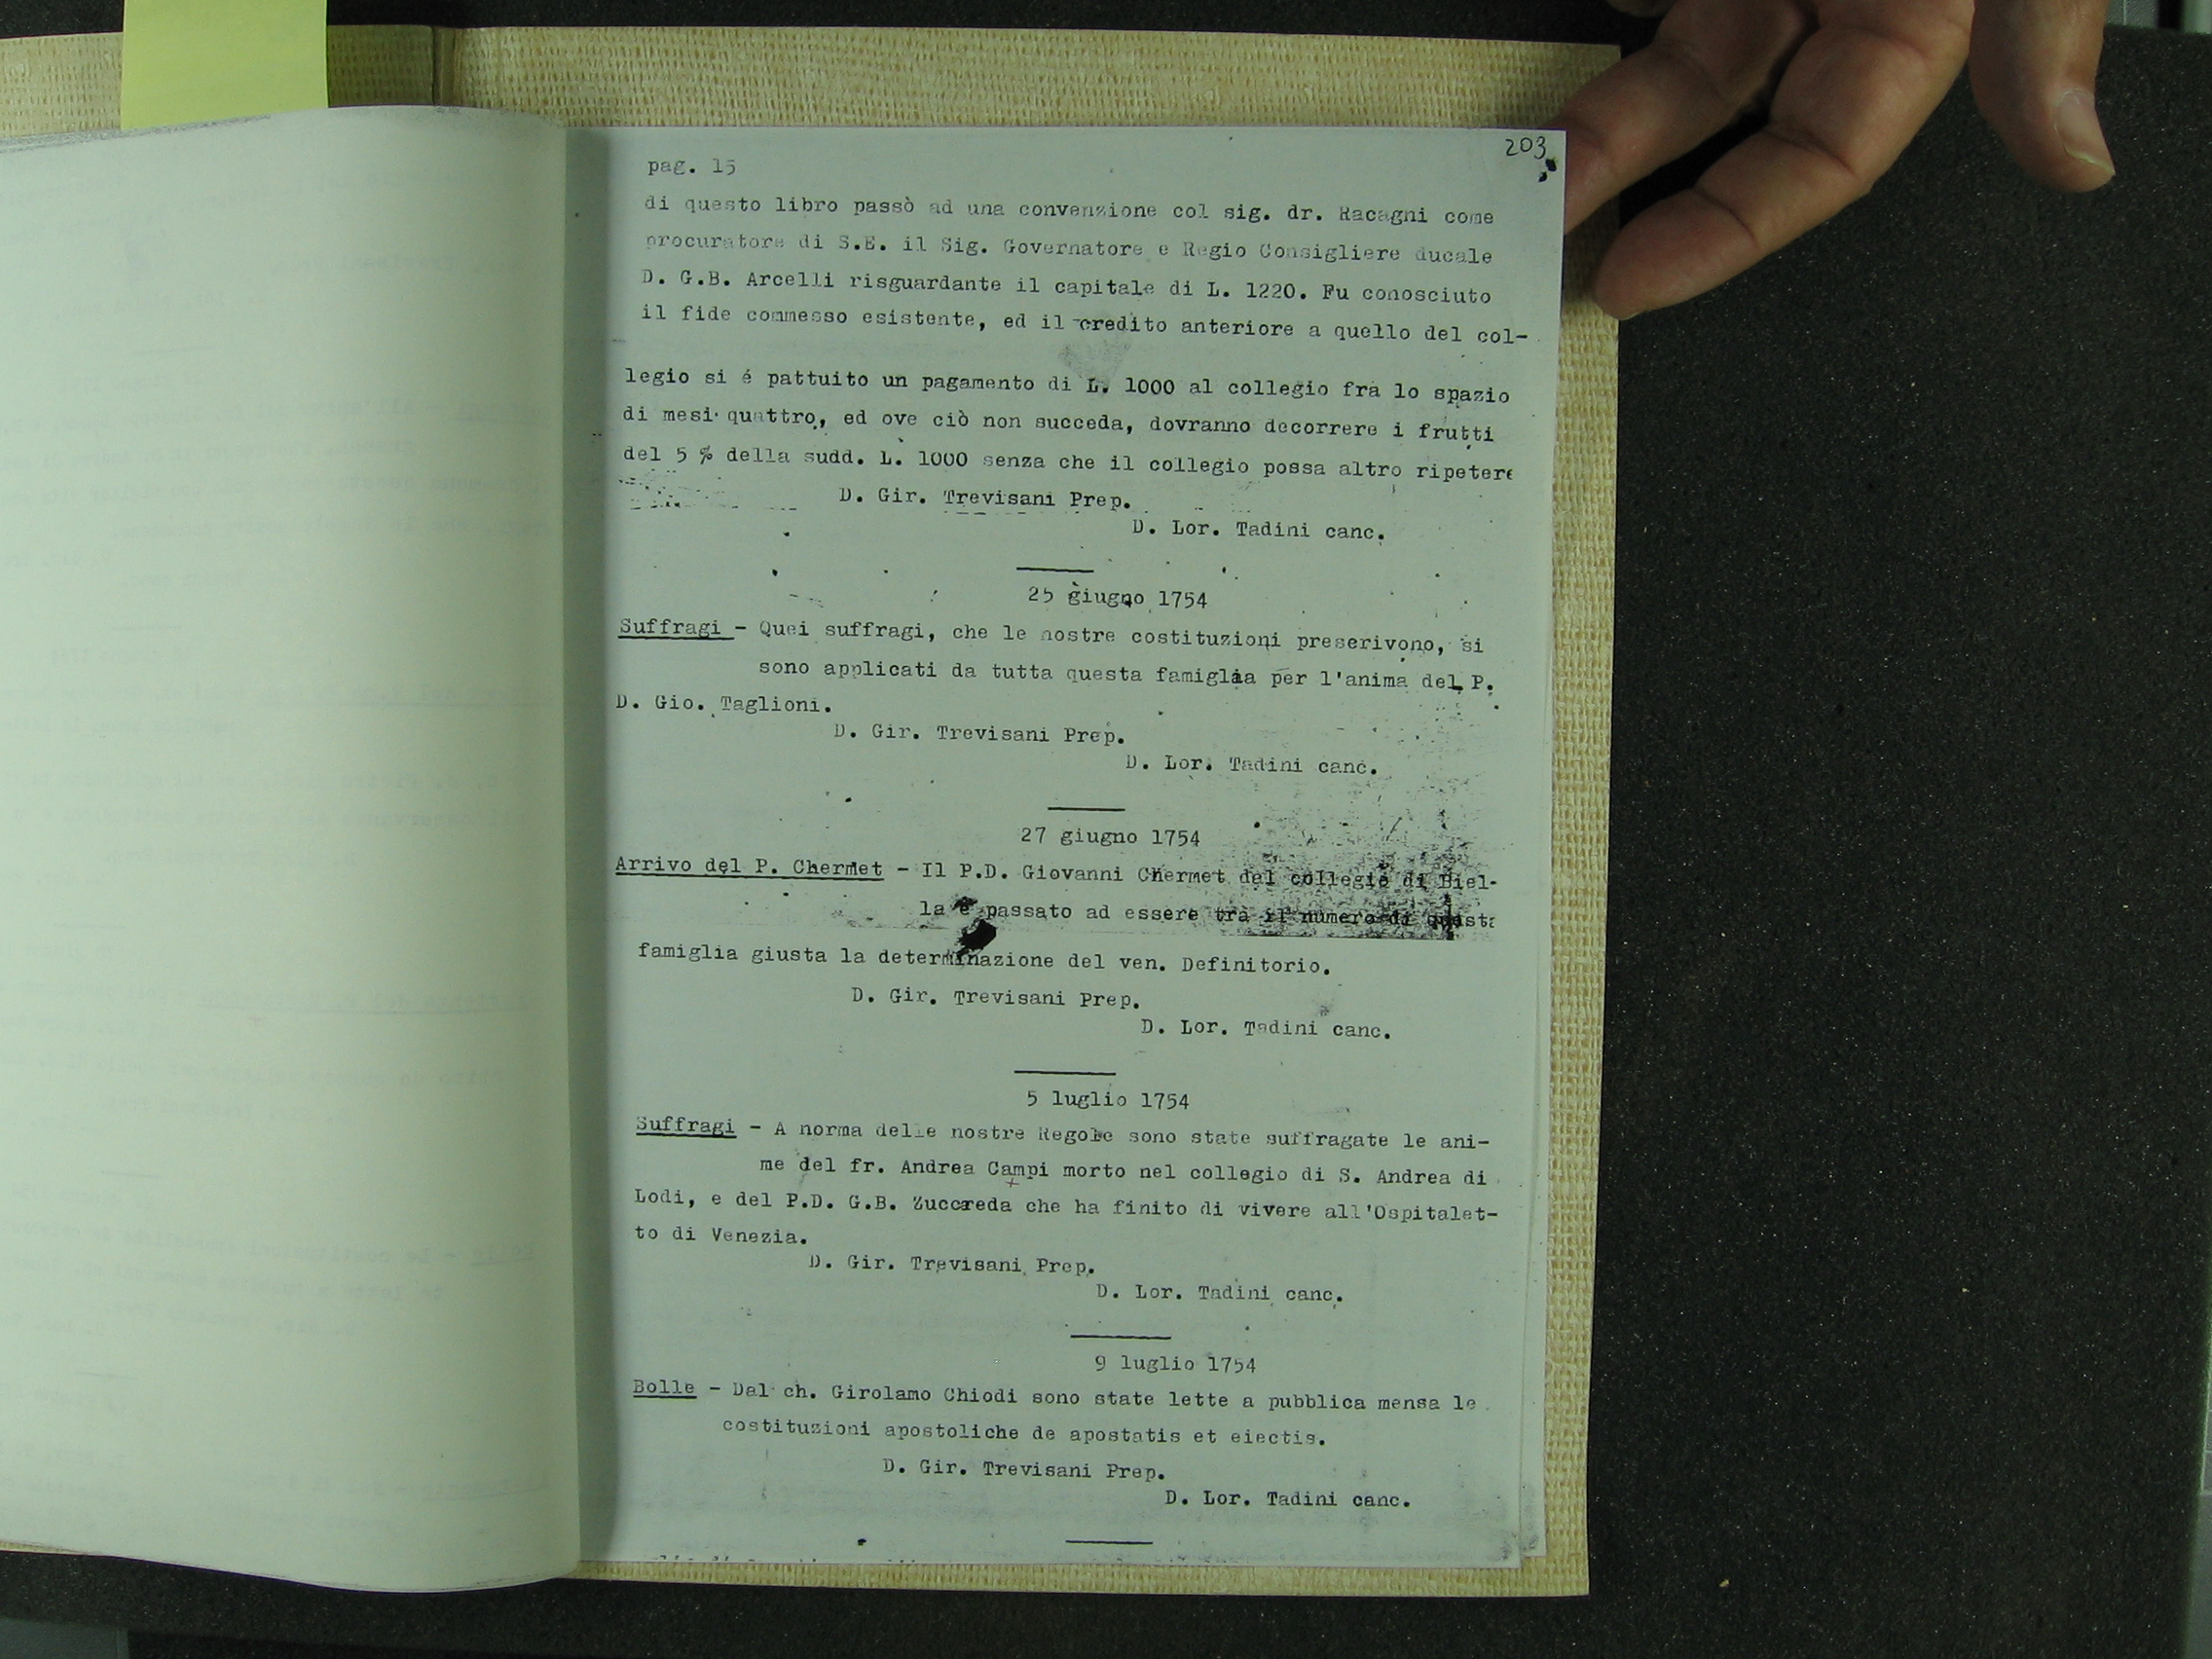 203
pag. 15
di questo libro passò ad una convenzione col sig. dr. Racagni come
procuratore di S.E. il Sig. Governatore e Regio Consigliere ducale
D. G.B. Arcelli risguardante il capitale di L. 1220. Fu conosciuto
il fide commesso esistente, ed il credito anteriore a quello del col-
legio si é pattuito un pagamento di L. 1000 al collegio fra lo spazio
di mesi quattro, ed ove ciò non succeda, dovranno decorrere i frutti
del 5 % della sudd. L. 1000 senza che il collegio possa altro ripetere
D. Gir. Trevisani Prep.
D. Lor. Tadini canc.
25 giugno 1754
Suffragi - Quei suffragi, che le nostre costituzioni preserivono, si
sono applicati da tutta questa famiglia per l'anima del P.
D. Gio. Taglioni.
D. Gir. Trevisani Prep.
D. Lor. Tadini canc.
27 giugno 1754
Arrivo del P. Chermet - Il P.D. Giovanni Chermet del collegio di Biel-
la é passato ad essere tra il numero di questa
famiglia giusta la determinazione del ven. Definitorio.
D. Gir. Trevisani Prep.
D. Lor. Tadini canc.
5 luglio 1754
Suffragi - A norma delle nostre Regole sono state suffragate le ani-
me del fr. Andrea Campi morto nel collegio di S. Andrea di
Lodi, e del P.D. G.B. Zuccreda che ha finito di vivere all'Ospitalet-
to di Venezia.
D. Gir. Trevisani Prep.
D. Lor. Tadini canc.
9 luglio 1754
Bolle - Dal ch. Girolamo Chiodi sono state lette a pubblica mensa le
costituzioni apostoliche de apostatis et eiectis.
D. Gir. Trevisani Prep.
D. Lor. Tadini canc.